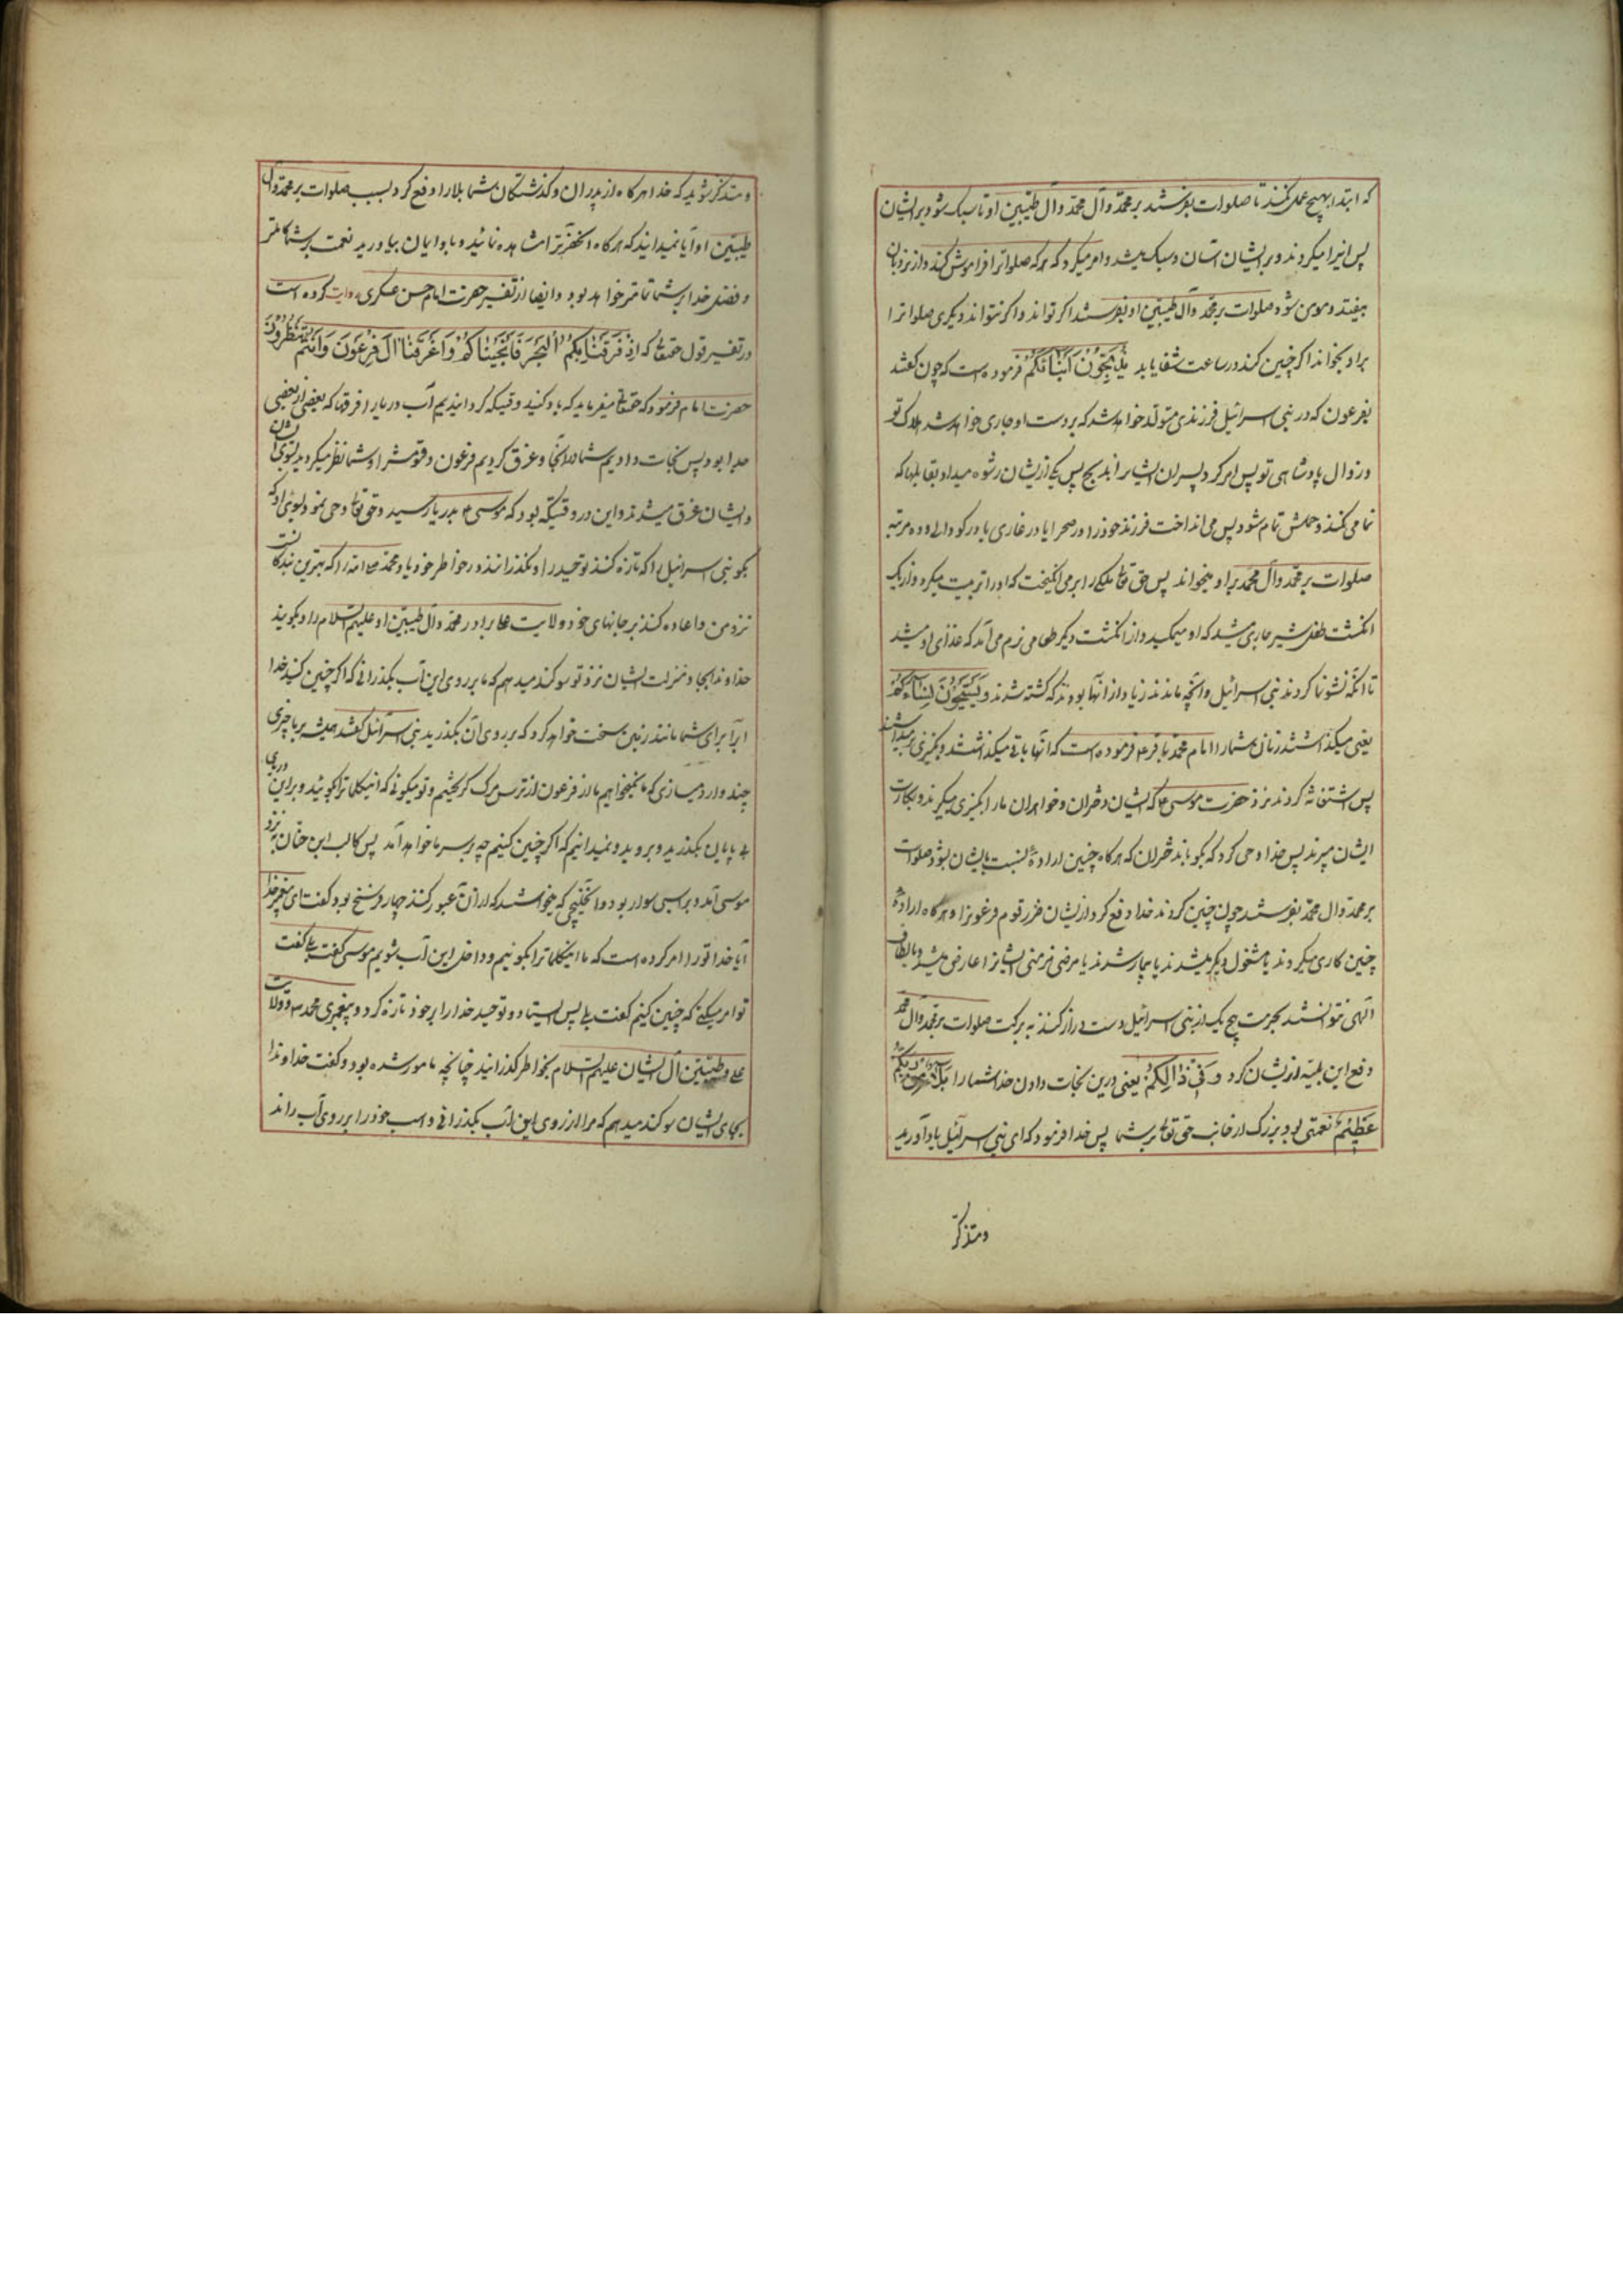 که ابتدا بهیچ عمل نکنند تا صلوات بفرستند بر محمد و آل محمد و آل طیبین او تا سبک شود بر ایشان
پس اینرا میکردند و بر ایشان آسان و سبک میشد و امر میکرد که هر که صلواترا فراموش کند و از نردبان
بیفتد و مزمن شود صلوات بر محمد و آل طیبین او بفرستد اگر تواند و اگر نتواند دیگری صلواترا
بر او بخواند اگر چنین کند در ساعت شفا یابد یُذَبِّحُونَ اَبْنَائَکُمْ فرموده است که چون گفتند
بفرعون که در بنی اسرائیل فرزندی متولد خواهد شد که بر دست او جاری خواهد شد هلاک تو
و زوال پادشاهی تو پس امر کرد پسران ایشانرا بذبح پس یکی از ایشان رشوه میداد بقابلها که
نمامی نکنند و حملش تمام شود پس می انداخت فرزند خود را در صحرا یا در غاری یا در گودالی و ده مرتبه
صلوات بر محمد و آل محمد بر او میخواند پس حق تعالی ملکیرا بر می انگیخت که او را تربیت میکرد و از یک
انگشت طفل شیر جاری میشد که او میمکید و از انگشت دیگر طعامی نرم می آمد که غذای او میشد
تا آنکه نشو نما کردند بنی اسرائیل و آنچه ماندند زیاد از آنها بودند که کشته شدند وَیَسْتَحْیُونَ نِسَاءَکُمْ
یعنی میگذاشتند زنان شما را امام محمد باقر ع فرموده است که آنها باقی میگذاشتند و بکنیزی بر میداشتند
پس استغاثه کردند نزد حضرت موسی ع که ایشان دختران و خواهران ما را بکنیزی میگیرند و بکارت
ایشان میبرند پس خدا وحی کرد که بگو باین دختران که هرگاه چنین ارادهٔ نسبت بایشان بشود صلوات
بر محمد و آل محمد بفرستند چون چنین کردند خدا دفع کرد از ایشان ضرر قوم فرعونرا و هرگاه ارادهٔ
چنین کاری میکردند یا مشغول دیگر میشدند یا بیمار شدند یا مرضی مزمنی ایشانرا عارض میشد و بالطاف
الهی نتوانستند بحرمت هیچ یک از بنی اسرائیل دست دراز کنند به برکت صلوات بر محمد و آل محمد
دفع این بلیّه از ایشان کرد وَفِی ذَالِکُمْ یعنی درین نجات دادن خدا شما را بَلاءٌ مِنْ رَبِّکُمْ
عَظِیْمٌ نعمتی بود بزرگ از جانب حق تعالی بر شما پس خدا فرمود که ای بنی اسرائیل یاد آورید
و متذکر
و متذکر شوید که خدا هرگاه از پدران و گذشتگان شما بلا را دفع کرد بسبب صلوات بر محمد و آل
طیبین او آیا نمیدانید که هرگاه آنحضرت را مشاهده نمائید و باو ایمان بیاورید نعمت بر شما کاملتر
و فضل خدا بر شما تمامتر خواهد بود و ایضا از تفسیر حضرت امام حسن عسکری روایت کرده است
در تفسیر قول حقتعالی که اِذْ فَرَقْنَا بِکُمُ الْبَحْرَ فَاَنْجَیْنَاکُمْ وَاَغْرَقْنَا آلَ فِرْعَوْنَ وَاَنْتُمْ تَنْظُرُونَ
حضرت امام فرمود که حقتعالی میفرماید که یاد کنید وقتیکه گردانیدیم آب دریا را فرقها که بعضی از بعضی
جدا بود پس نجات دادیم شما را در آنجا و غرق کردیم فرعون و قومش را و شما نظر میکردید بسوی ایشان
و ایشان غرق میشدند و این در وقتیکه بود که موسی ع بدریا رسید و حق تعالی وحی نمود بسوی او که
بگو بنی اسرائیل را که تازه کنند توحید مرا و بگذرانند در خاطر خود یاد محمد ص را که بهترین بندگانست
نزد من و اعاده کنند بر جانهای خود ولایت علی برادر محمد و آل طیبین او علیهم السلام را و بگویند
خداوندا بجاه و منزلت ایشان نزد تو سوگند میدهم که ما را بر روی این آب بگذرانی که اگر چنین کنید خدا
آبرا برای شما مانند زمین سخت خواهد کرد که بر روی آن بگذرید بنی اسرائیل گفتند همیشه بر ما چیزی
چند وارد میسازی که ما نمیخواهیم ما از فرعون از ترس مرگ گریختیم و تو میگوئی که اینکلماترا بگوئید و بر این دریای
بی پایان بگذرید و بروید و نمیدانیم که اگر چنین کنیم چه بر سر ما خواهد آمد پس کالب ابن یوحنا به نزد
موسی آمد و بر اسبی سوار بود و آن خلیجی که میخواستند که از آن عبور کنند چهار فرسخ بود گفت ای پیغمبر خدا
آیا خدا تو را امر کرده است که ما اینکلماترا بگوئیم و داخل این آب شویم موسی گفت بلی گفت
تو امر میکنی که چنین کنیم گفت بلی پس ایستاد و توحید خدا را بر خود تازه کرد و پیغمبری محمد ص و ولایت
علی و طیبین آل ایشان علیهم السلام بخاطر گذرانید چنانچه مامور شده بود و گفت خداوندا
بجاه ایشان سوگند میدهم که مرا از روی این آب بگذرانی و اسب خود را بر روی آب راند